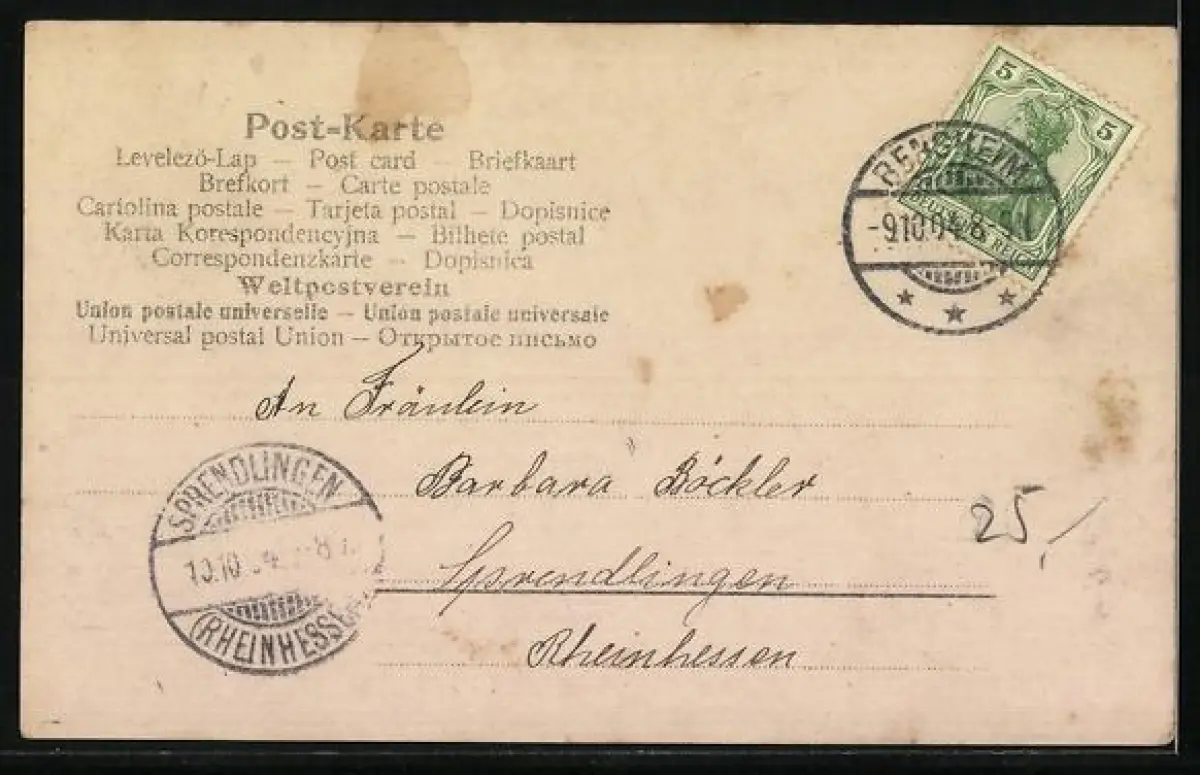 Post-Karte
Levelező-Lap — Post card — Briefkaart
Brefkort — Carte postale
Cartolina postale — Tarjeta postal — Dopisnice
Karta Korespondencyjna — Bilhete postal
Correspondenzkarte — Dopisnica
Weltpostverein
Union postale universelle — Union postale universale
Universal postal Union — Открытое письмо
5 5
-9.10.04. 8-9
An Fräulein
Barbara Böckler
Sprendlingen
Rheinhessen
25,-
SPRENDLINGEN
10.10 04 -8
(RHEINHESSEN)